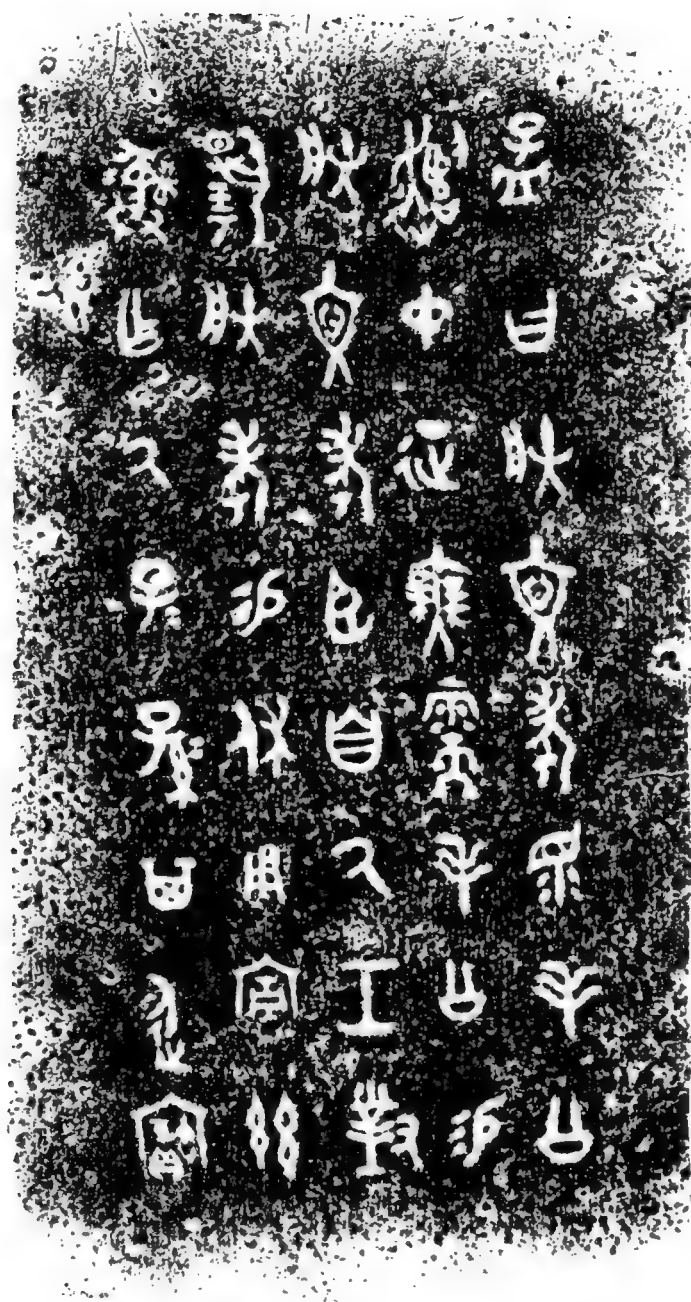 孟曰朕文考眔毛公
遣中征無需毛公易
朕文考臣自氒工對
揚朕考易休用宣茲
彝乍氒子＝孫＝其永寶